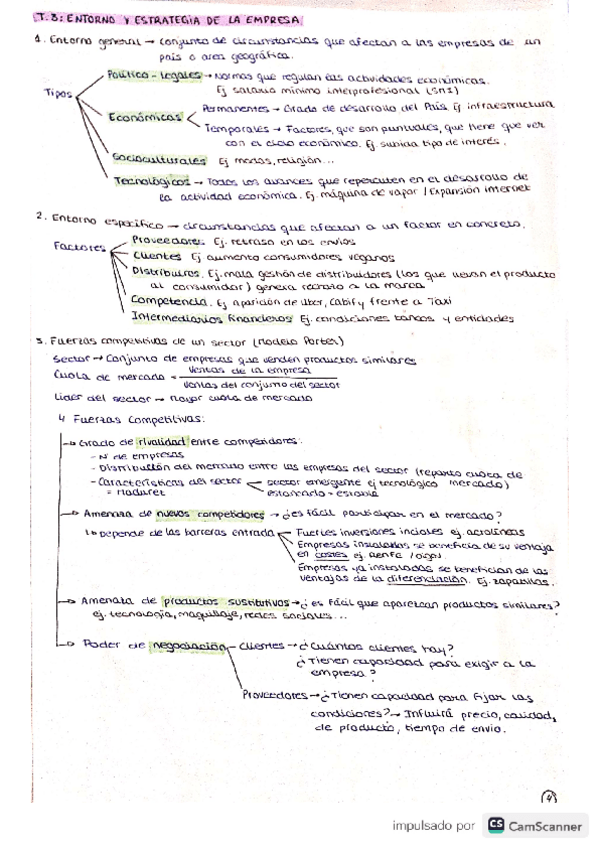 T.3: ENTORNO Y ESTRATEGIA DE LA EMPRESA
1. Entorno general → Conjunto de circunstancias que afectan a las empresas de un
país o area geográfica.
Tipos
Político-legales → Normas que regulan las actividades económicas.
Ej salario mínimo interprofesional (SMI)
Económicas
Permanentes → Grado de desarrollo del País Ej infraestructura
Temporales → Factores, que son puntuales, que tiene que ver
con el ciclo económico. Ej subida tipo de interés.
Socioculturales Ej modas, religión...
Tecnológicos → Todos los avances que repercuten en el desarrollo de
la actividad económica. Ej. máquina de vapor / Expansión internet
2. Entorno específico → circunstancias que afectan a un factor en concreto.
Factores
Proveedores Ej. retraso en los envíos
Clientes Ej aumento consumidores veganos
Distribuiros. Ej. mala gestión de distribuidores (los que llevan el producto
al consumidor) genera rechazo a la marca
Competencia. Ej aparición de Uber, Cabify frente a Taxi
Intermediarios financieros Ej. condiciones bancos y entidades
3. Fuerzas competitivas de un sector (modelo Porter)
Sector → Conjunto de empresas que venden productos similares
Cuota de mercado = Ventas de la empresa
Ventas del conjunto del sector
Lider del sector → Mayor cuota de mercado
4 Fuerzas Competitivas:
→ Grado de rivalidad entre competidores:
- Nº de empresas
- Distribución del mercado entre las empresas del sector (reparto cuota de
mercado)
- Características del sector
= Madurez
sector emergente ej tecnológico
estancado = estable
→ Amenaza de nuevos competidores → ¿es fácil participar en el mercado?
↳ Depende de las barreras entrada
Fuertes inversiones inciales ej. aerolíneas
Empresas instaladas se beneficia de su ventaja
en costes ej. Renfe / oigo).
Empresas ya instaladas se benefician de las
ventajas de la diferenciación. Ej. zapatillas.
→ Amenaza de productos sustitutivos → ¿es fácil que aparezcan productos similares?
ej. tecnología, maquillaje, redes sociales...
→ Poder de negociación
Clientes → ¿Cuántos clientes hay?
¿Tienen capacidad para exigir a la
empresa?
Proveedores → ¿Tienen capacidad para fijar las
condiciones? → Influirá precio, calidad,
de producto, tiempo de envio.
4
impulsado por CS CamScanner